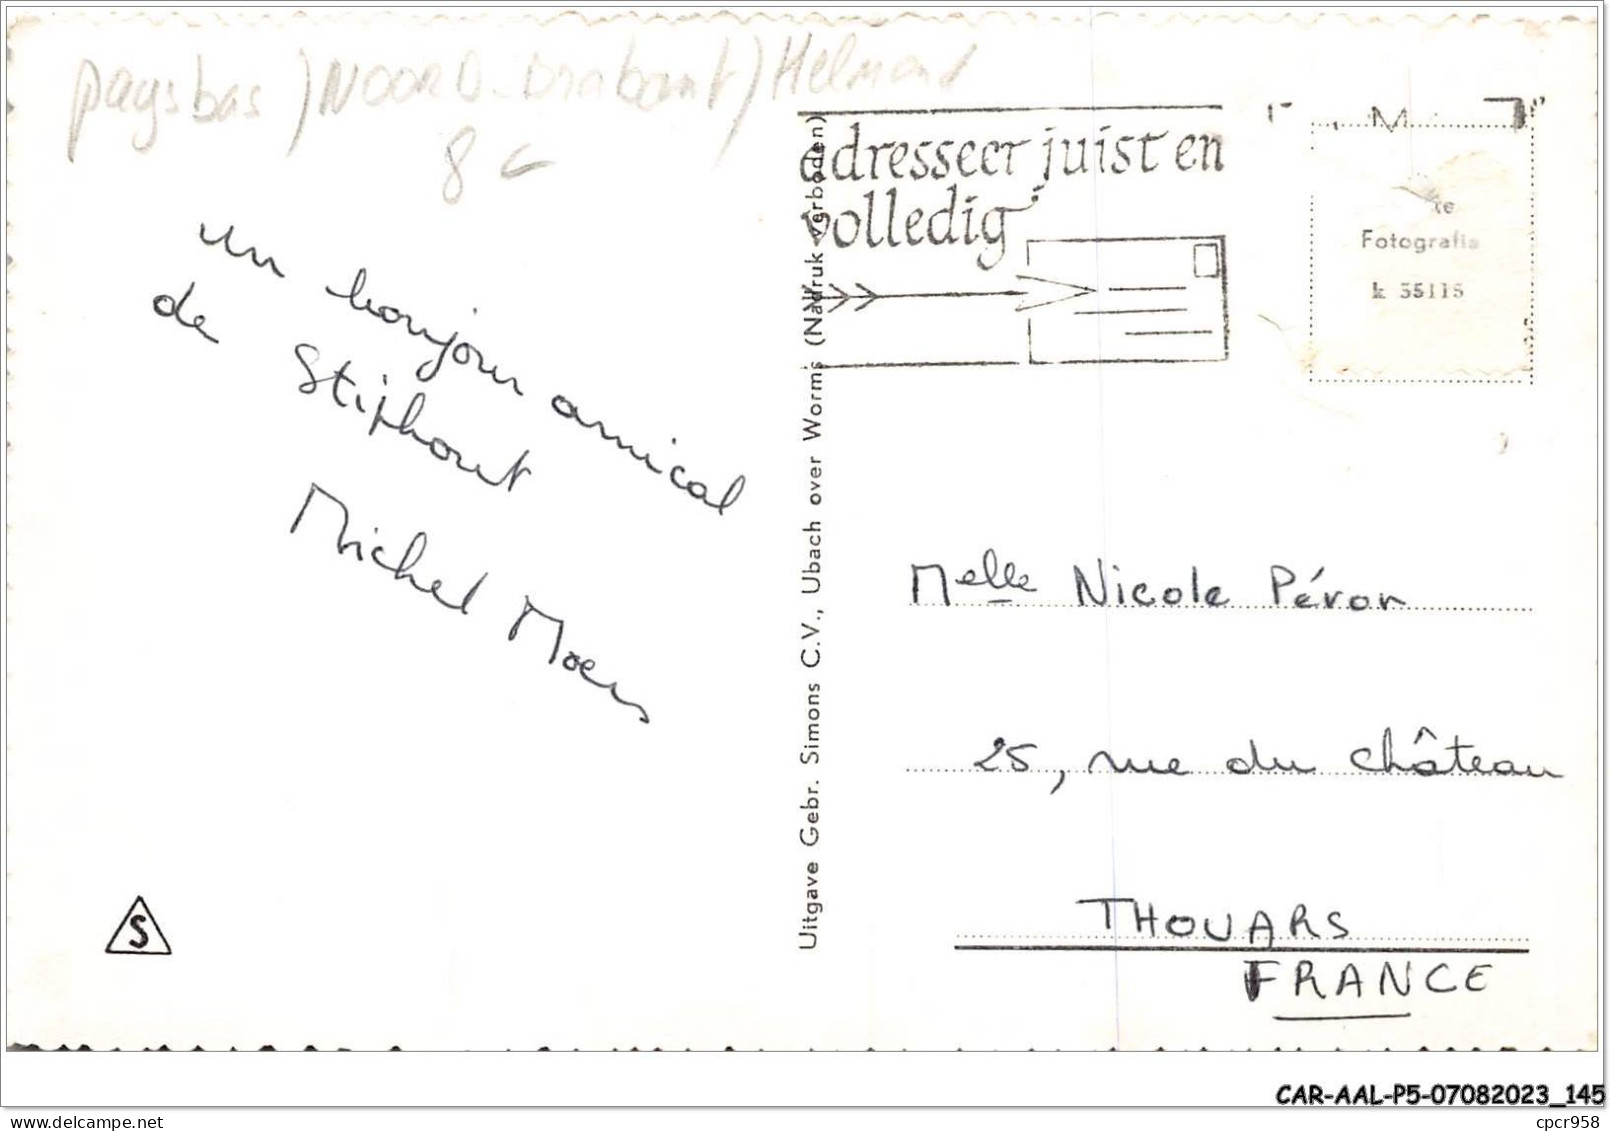 pays bas ) NOORD-Brabant ) Helmond
8 €
un bonjour amical
de Stiphout
Michel Moers
S
Uitgave Gebr. Simons C.V., Ubach over Worms (Nadruk verboden)
adresseer juist en
volledig
Fotografie
k 55115
Melle Nicole Péron
25, rue du château
THOUARS
FRANCE
CAR-AAL-P5-07082023_145
www.delcampe.net
cpcr958